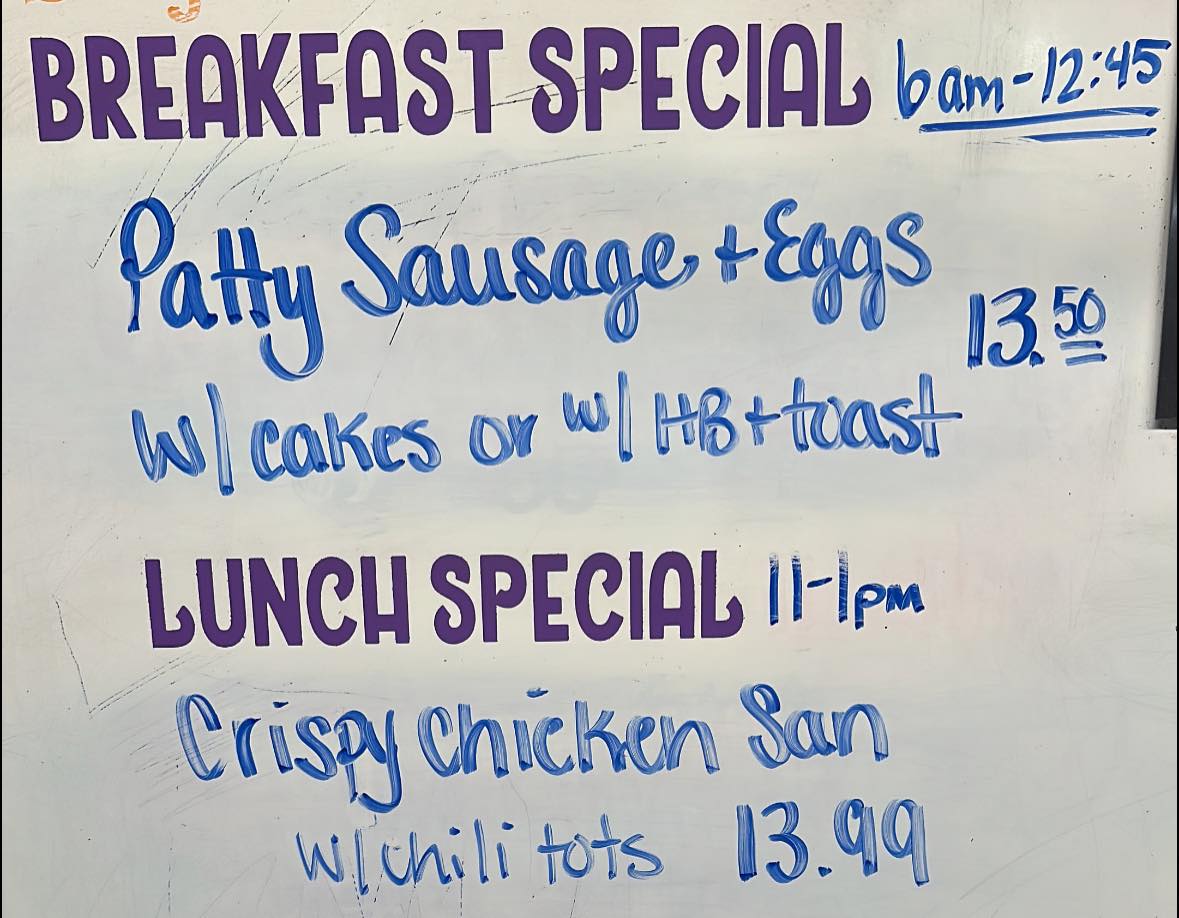 BREAKFAST SPECIAL 6am-12:45
Patty Sausage + Eggs
13.50
w/ cakes or w/ HB + toast
LUNCH SPECIAL 11-1pm
Crispy Chicken San
w/chili tots 13.99